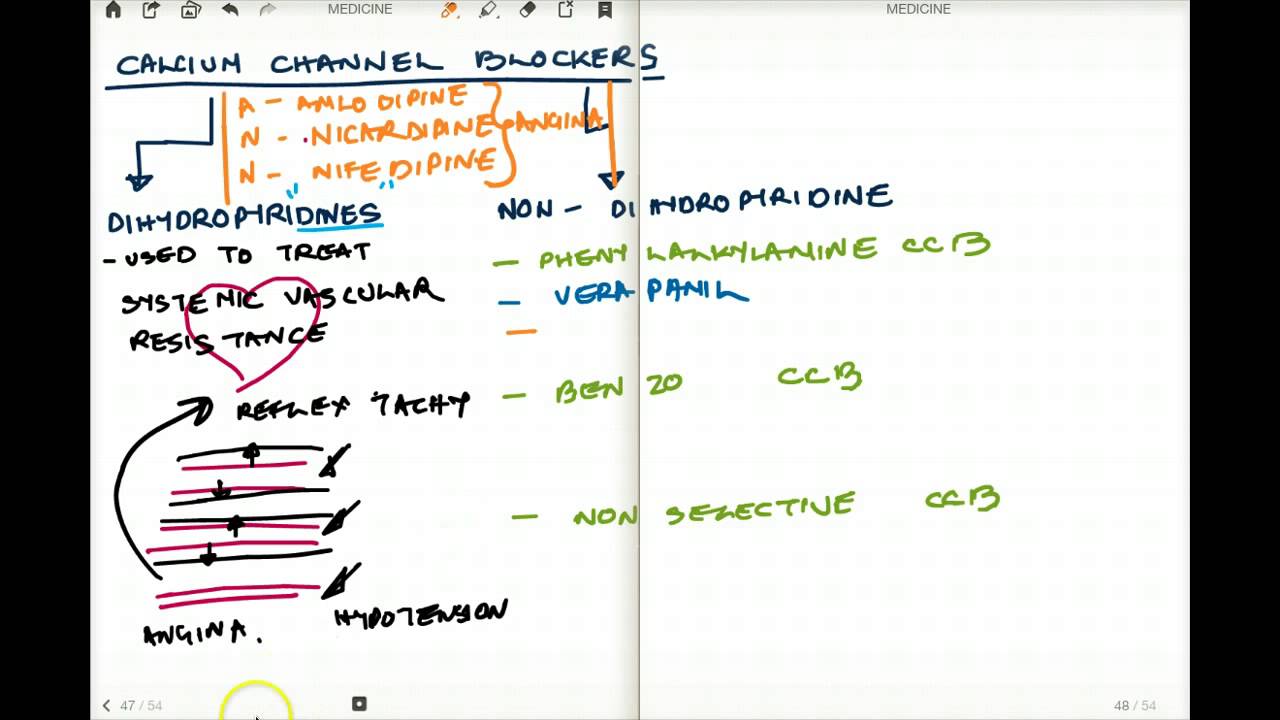 MEDICINE
MEDICINE
CALCIUM CHANNEL BLOCKERS
A - AMLODIPINE
N - NICARDIPINE ANGINA
N - NIFEDIPINE
DIHYDROPYRIDINES
- USED TO TREAT
SYSTEMIC VASCULAR
RESISTANCE
REFLEX TACHY
HYPOTENSION
ANGINA.
NON - DIHYDROPYRIDINE
- PHENYLALKYLANINE CCB
- VERAPANIL
-
- BENZO CCB
- NON SELECTIVE CCB
47 / 54
48 / 54